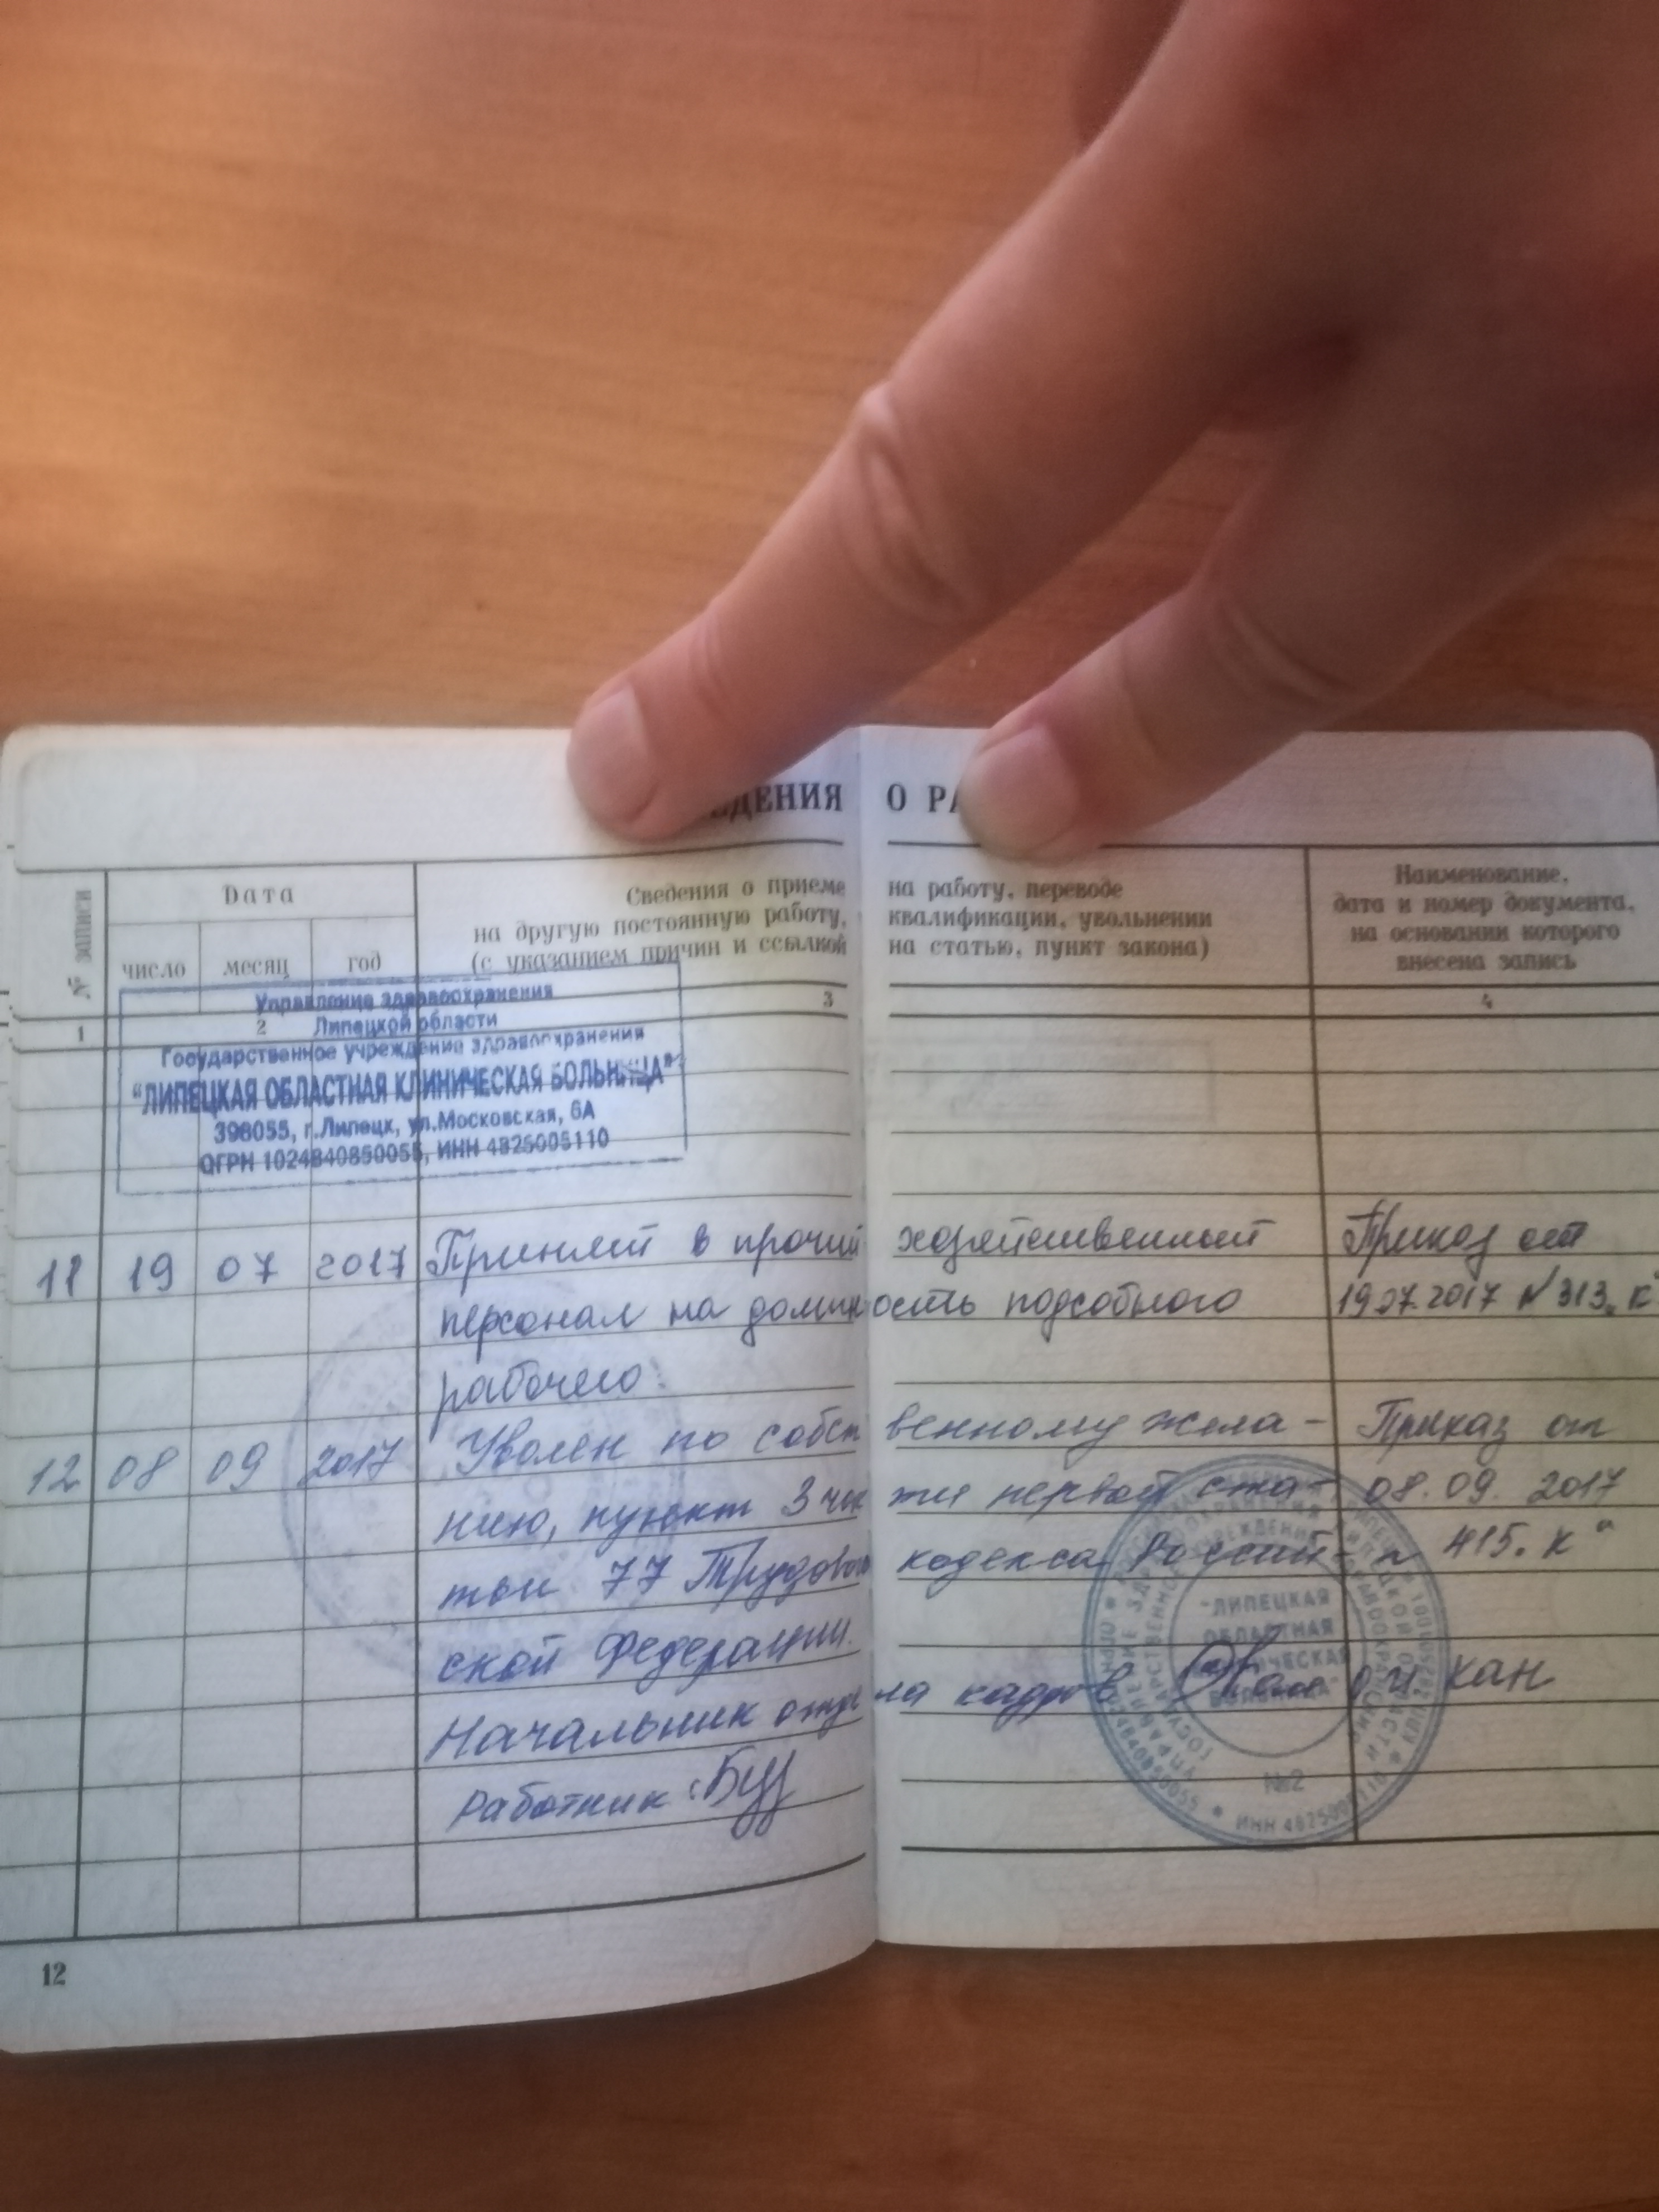 ДЕНИЯ О РА
№ записи
Дата
число месяц год
Сведения о приеме на работу, переводе
на другую постоянную работу, квалификации, увольнении
(с указанием причин и ссылкой на статью, пункт закона)
Наименование,
дата и номер документа,
на основании которого
внесена запись
1 2 3 4
Управление здравоохранения
Липецкой области
Государственное учреждение здравоохранения
"ЛИПЕЦКАЯ ОБЛАСТНАЯ КЛИНИЧЕСКАЯ БОЛЬНИЦА"
398055, г.Липецк, ул.Московская, 6А
ОГРН 1024840850055, ИНН 4825005110
11 19 07 2017 Принят в прочий хозяйственный Приказ от
персонал на должность подсобного 19.07.2017 №313 „к"
рабочего.
12 08 09 2017 Уволен по собственному жела- Приказ от
нию, пункт 3 части первой ста- 08.09.2017
тьи 77 Трудового кодекса Россий- № 415 „к"
ской Федерации.
Начальник отдела кадров
Работник:
"ЛИПЕЦКАЯ
ОБЛАСТНАЯ
КЛИНИЧЕСКАЯ
БОЛЬНИЦА"
№2
12